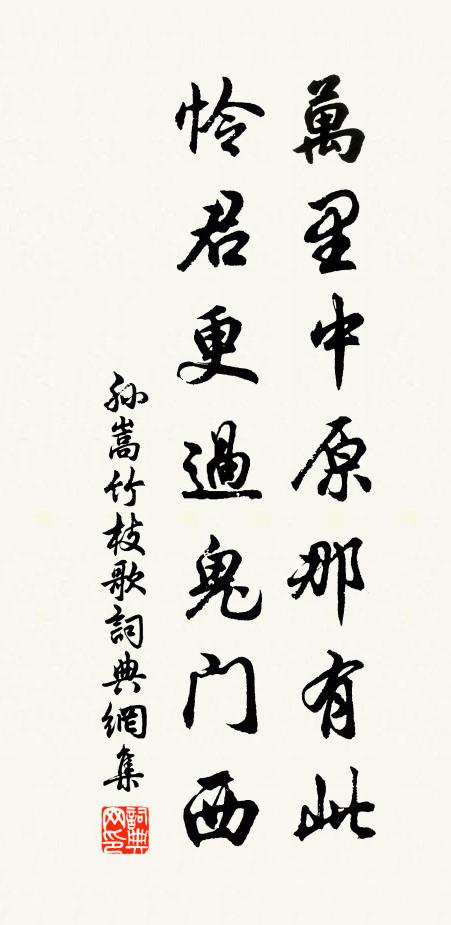 萬里中原那有此
怜君更過鬼门西
孙嵩竹枝歌詞典網集
詞典
网印